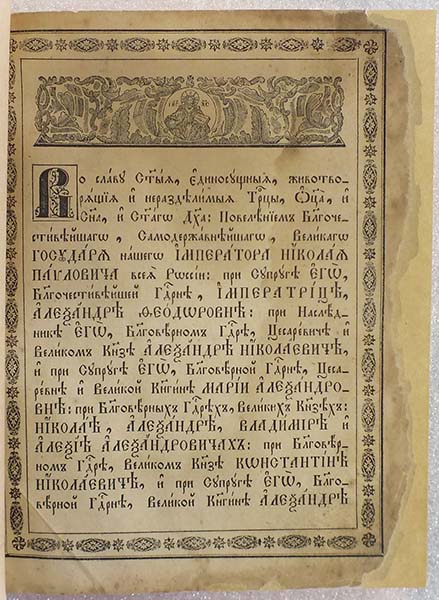 Во славу Ст҃ыѧ, Єдиносущныѧ, животво-
рѧщіѧ и нераздѣлимыѧ Трⷪ҇цы, Ѻ҆ц҃а, и
Сн҃а, и Ст҃агѡ Дх҃а: Повелѣніемъ Бл҃гоче-
стивѣйшагѡ, Самодержавнѣйшагѡ, Великагѡ
ГОСУДАРѦ нашегѡ ІМПЕРАТОРА НІКОЛАѦ
ПАѴЛОВИЧА всеѧ Рѡссіи: при Супругѣ ЕГѠ,
Бл҃гочестивѣйшей Гдⷭ҇рнѣ, ІМПЕРАТРИЦѢ,
АЛЕѮАНДРѢ ѲЕОДѠРОВНѢ: при Наслѣд-
никѣ ЕГѠ, Бл҃говѣрномъ Гдⷭ҇рѣ, Цесаревичѣ и
Великомъ Кн҃зѣ АЛЕѮАНДРѢ НІКОЛАЕВИЧѢ,
и при Супругѣ ЕГѠ, Бл҃говѣрной Гдⷭ҇рнѣ, Цеса-
ревнѣ и Великой Кн҃гинѣ МАРІИ АЛЕѮАНДРО-
ВНѢ: при Бл҃говѣрныхъ Гдⷭ҇рѣхъ, Великихъ Кн҃зѣхъ:
НІКОЛАѢ, АЛЕѮАНДРѢ, ВЛАДИМІРѢ и
АЛЕѮІѢ АЛЕѮАНДРОВИЧАХЪ: при Бл҃говѣр-
номъ Гдⷭ҇рѣ, Великомъ Кн҃зѣ КѠНСТАНТІНѢ
НІКОЛАЕВИЧѢ, и при Супругѣ ЕГѠ, Бл҃го-
вѣрной Гдⷭ҇рнѣ, Великой Кн҃гинѣ АЛЕѮАНДРѢ